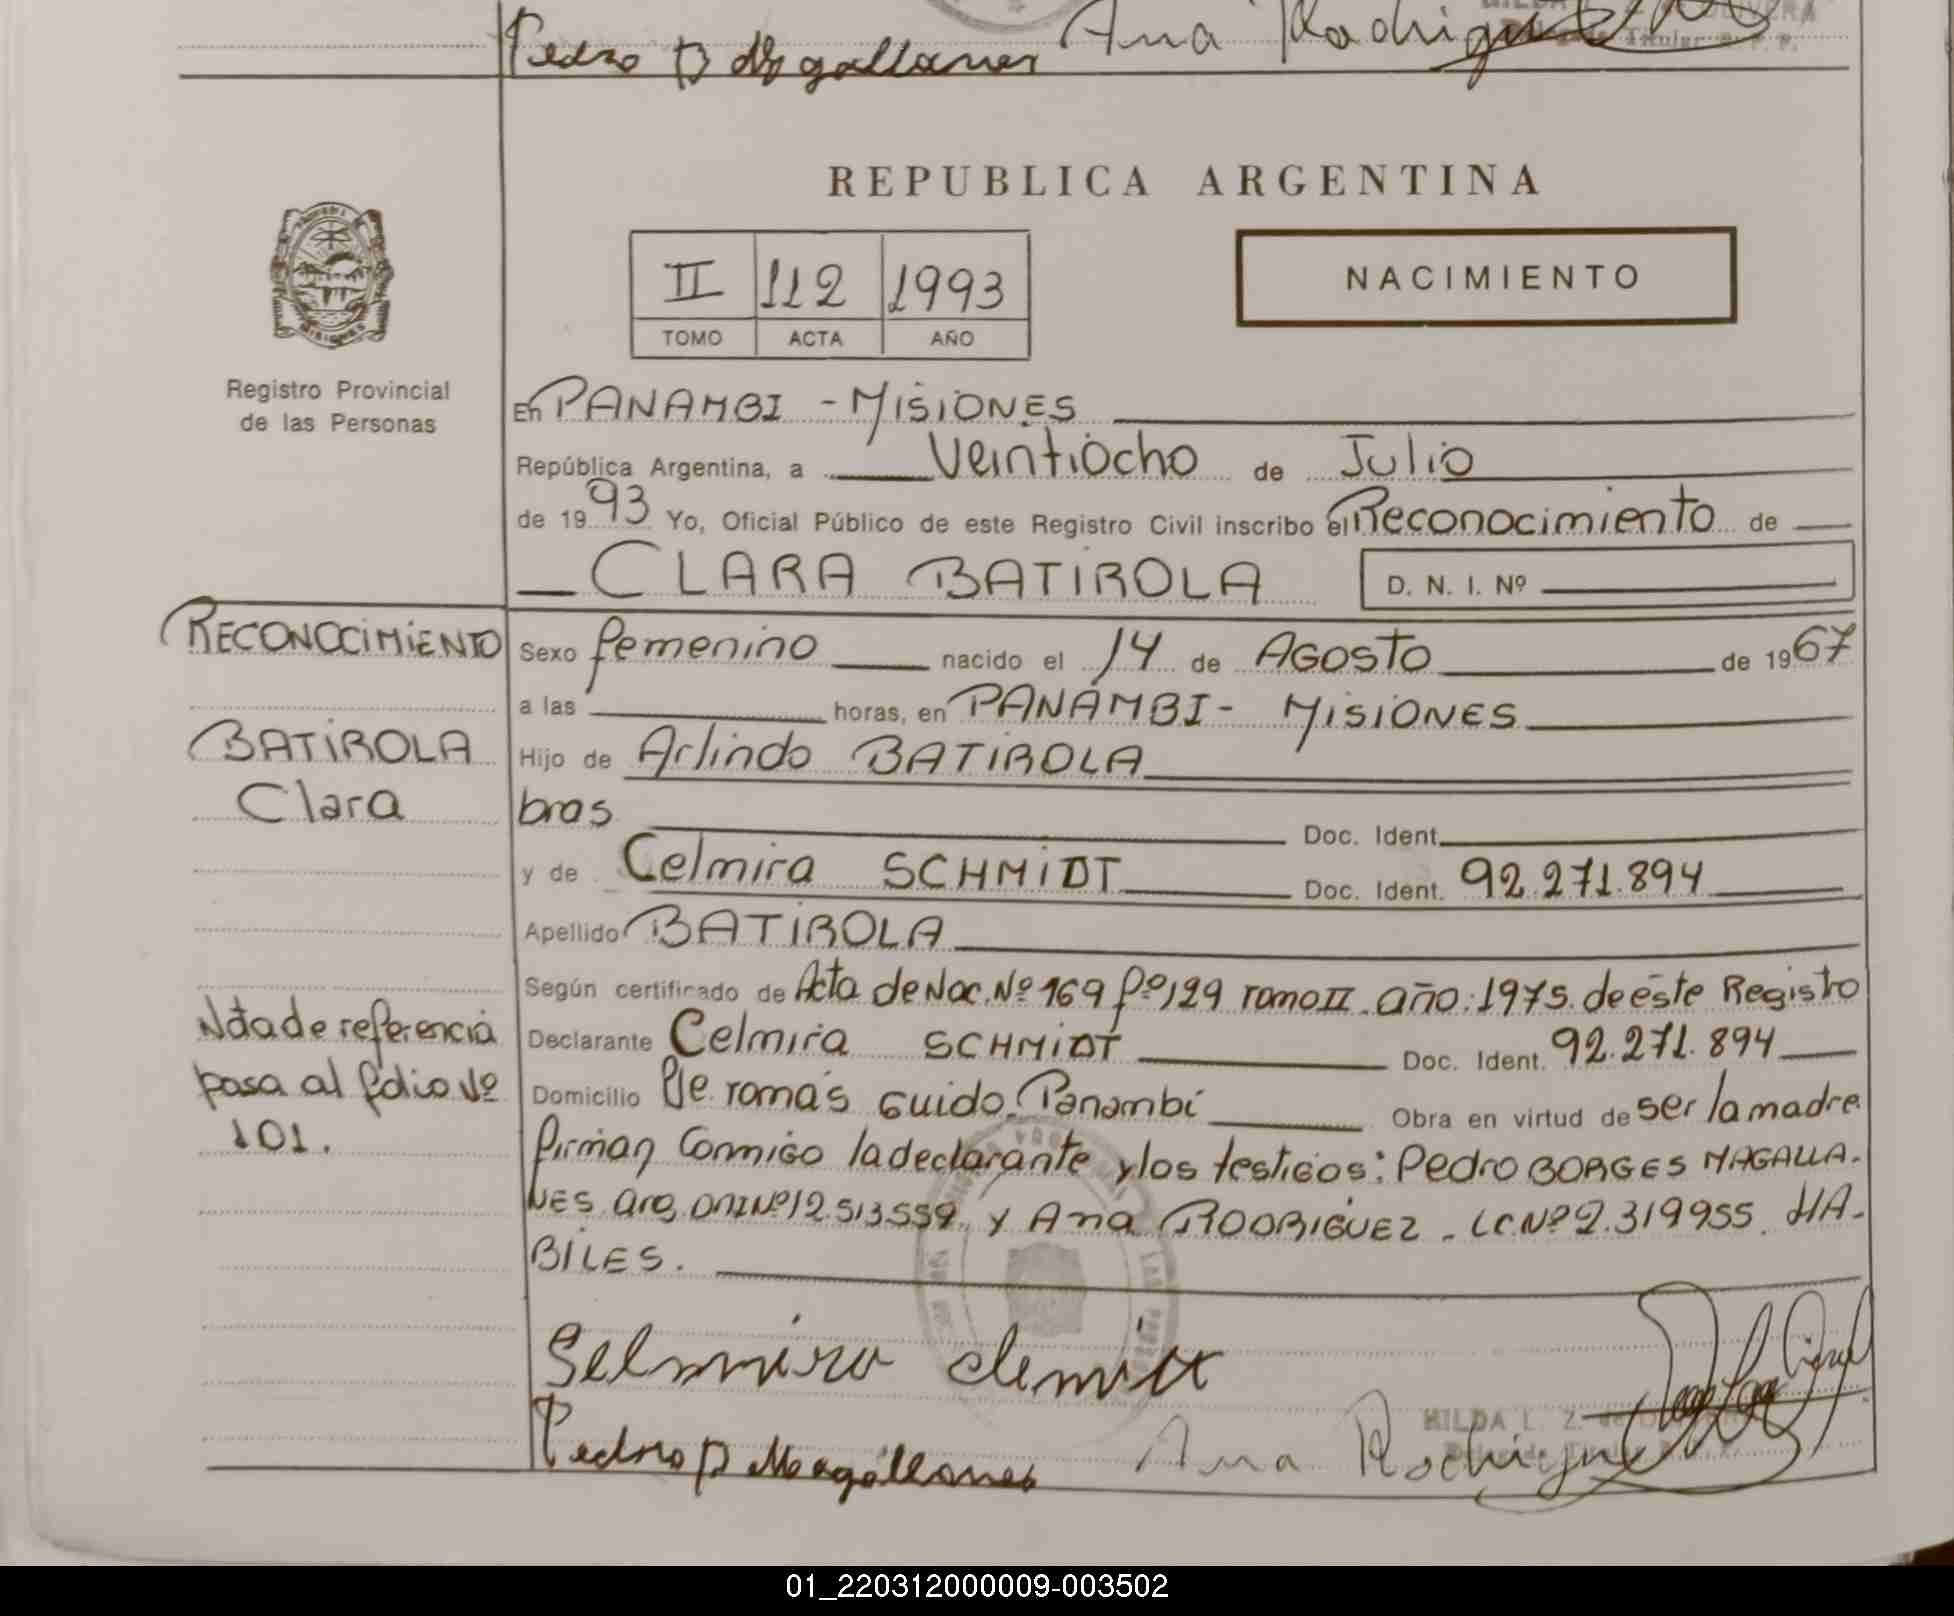 Pedro B Magallanes Ana Rodrigue
REPUBLICA ARGENTINA
II 112 1993
TOMO ACTA AÑO
NACIMIENTO
Registro Provincial
de las Personas
En PANAMBI - MISIONES
República Argentina, a Veintiocho de Julio
de 1993 Yo, Oficial Público de este Registro Civil inscribo el Reconocimiento de
CLARA BATIROLA D. N. I. Nº
RECONOCIMIENTO
BATIROLA
Clara
Sexo femenino nacido el 14 de AGOSTO de 1967
a las horas, en PANAMBI - MISIONES
Hijo de Arlindo BATIROLA
bras Doc. Ident.
y de Celmira SCHMIDT Doc. Ident. 92.271.894
Apellido BATIROLA
Según certificado de Acta de Nac. Nº 169 fº 129 Tomo II año: 1975. de éste Registro
Declarante Celmira SCHMIDT Doc. Ident. 92.271.894
Domicilio Pje. Tomás Guido. Panambí Obra en virtud de ser la madre
firman Conmigo la declarante y los testigos: Pedro BORGES MAGALLA-
NES arg. DNI Nº 12.513.559 y Ana RODRIGUEZ - LC. Nº 2.319955. HA-
BILES.
Nota de referencia
pasa al folio Nº
101.
Selmira
Pedro B Magallanes Ana Rodrigue
HILDA I. Z. de
01_220312000009-003502